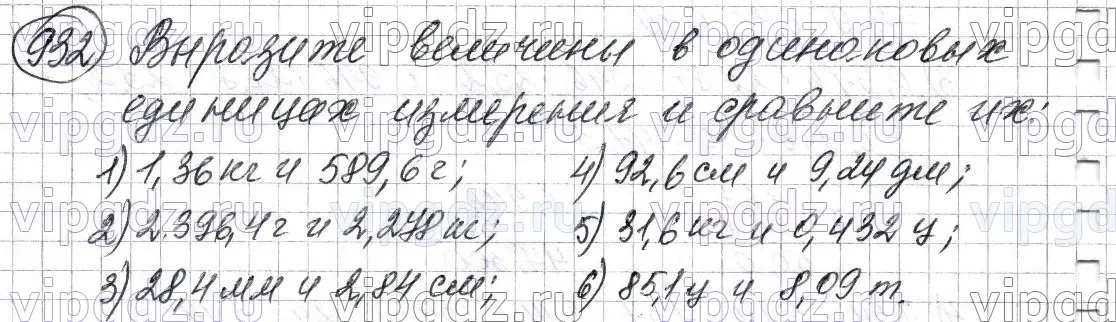 932 Выразите величины в одинаковых
единицах измерения и сравните их:
1) 1,36 кг и 589,6 г; 4) 92,6 см и 9,24 дм;
2) 2.396,4 г и 2,248 кг; 5) 31,6 кг и 0,432 ц;
3) 28,4 мм и 2,84 см; 6) 85,1 ц и 8,09 т.
vipgdz.ru